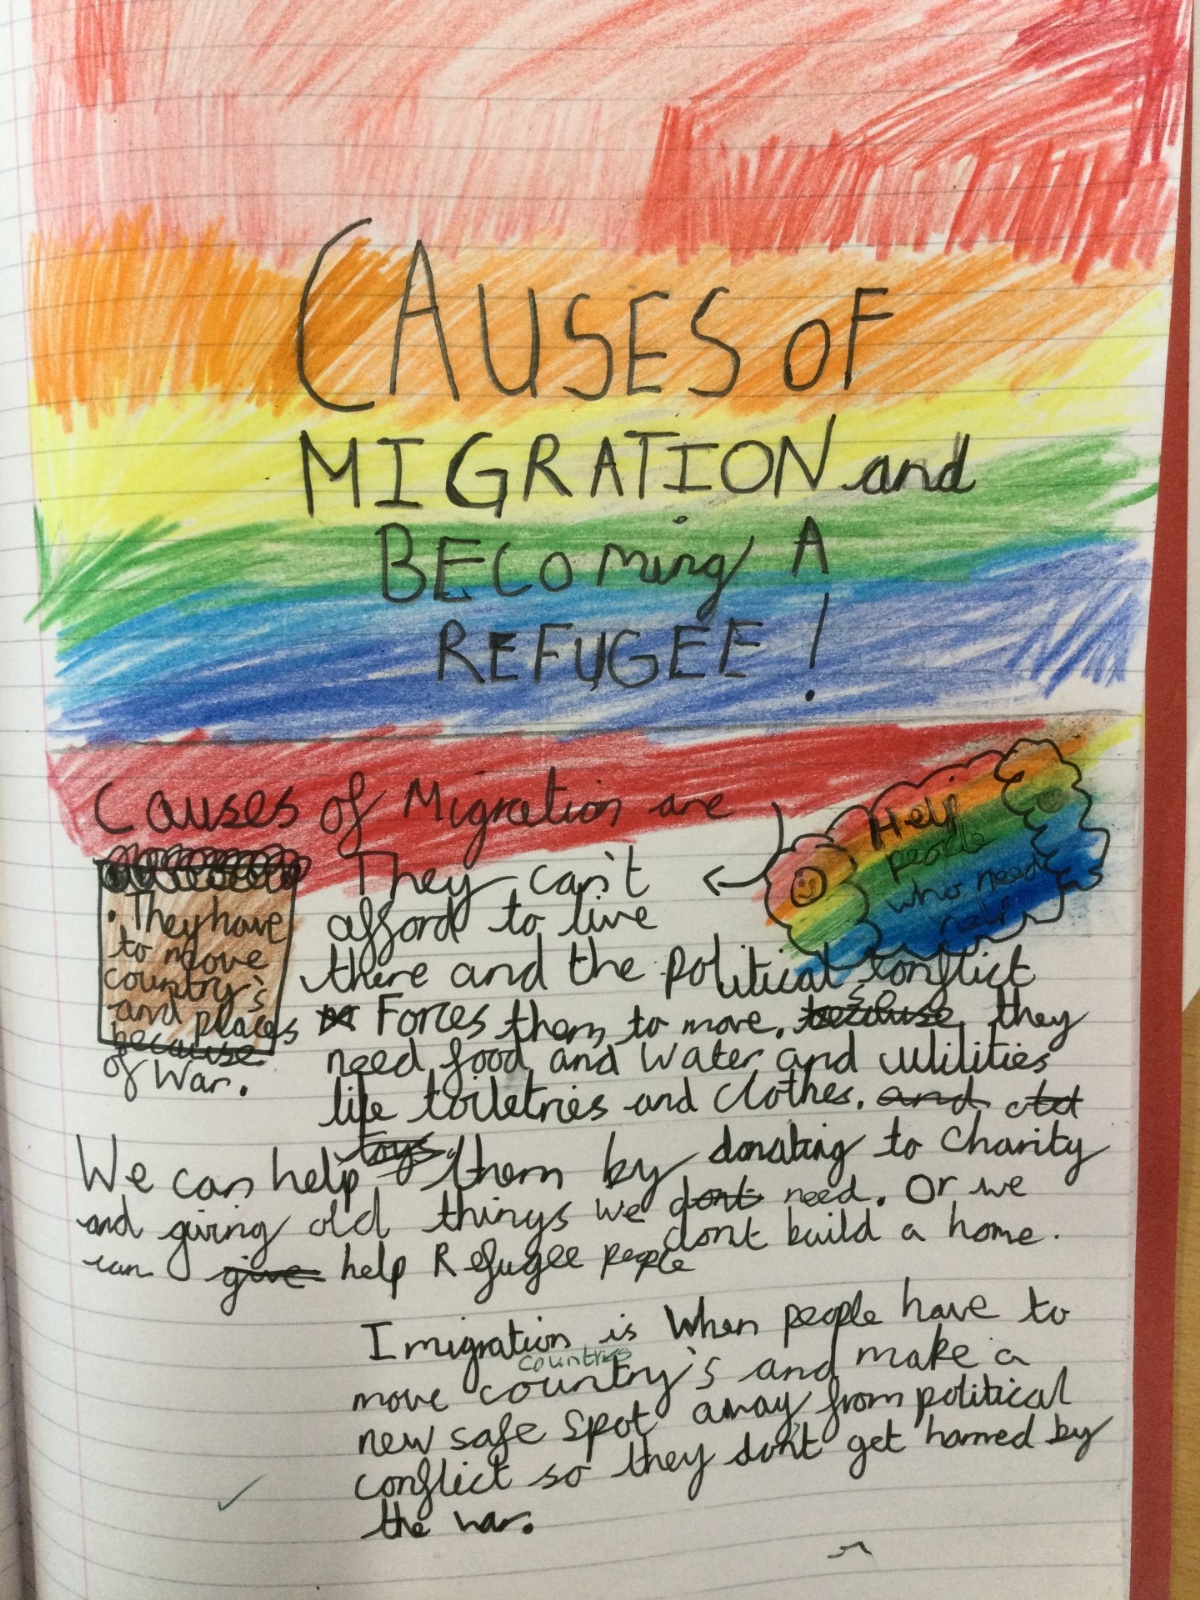 CAUSES OF
MIGRATION and
BECOming A
REFUGEE!
Causes of Migration are
Help
people
who need
help
• They have
to move
country's
and places
because
of War.
They can't
afford to live
there and the political conflict
Forces them to move. because they
need food and water and utilities
life toiletries and clothes. and old
toys.
We can help them by donating to charity
and giving old things we dont need. Or we
can give help Refugee people dont build a home.
Imigration is When people have to
countries
move country's and make a
new safe spot away from political
conflict so they don't get harmed by
the war.